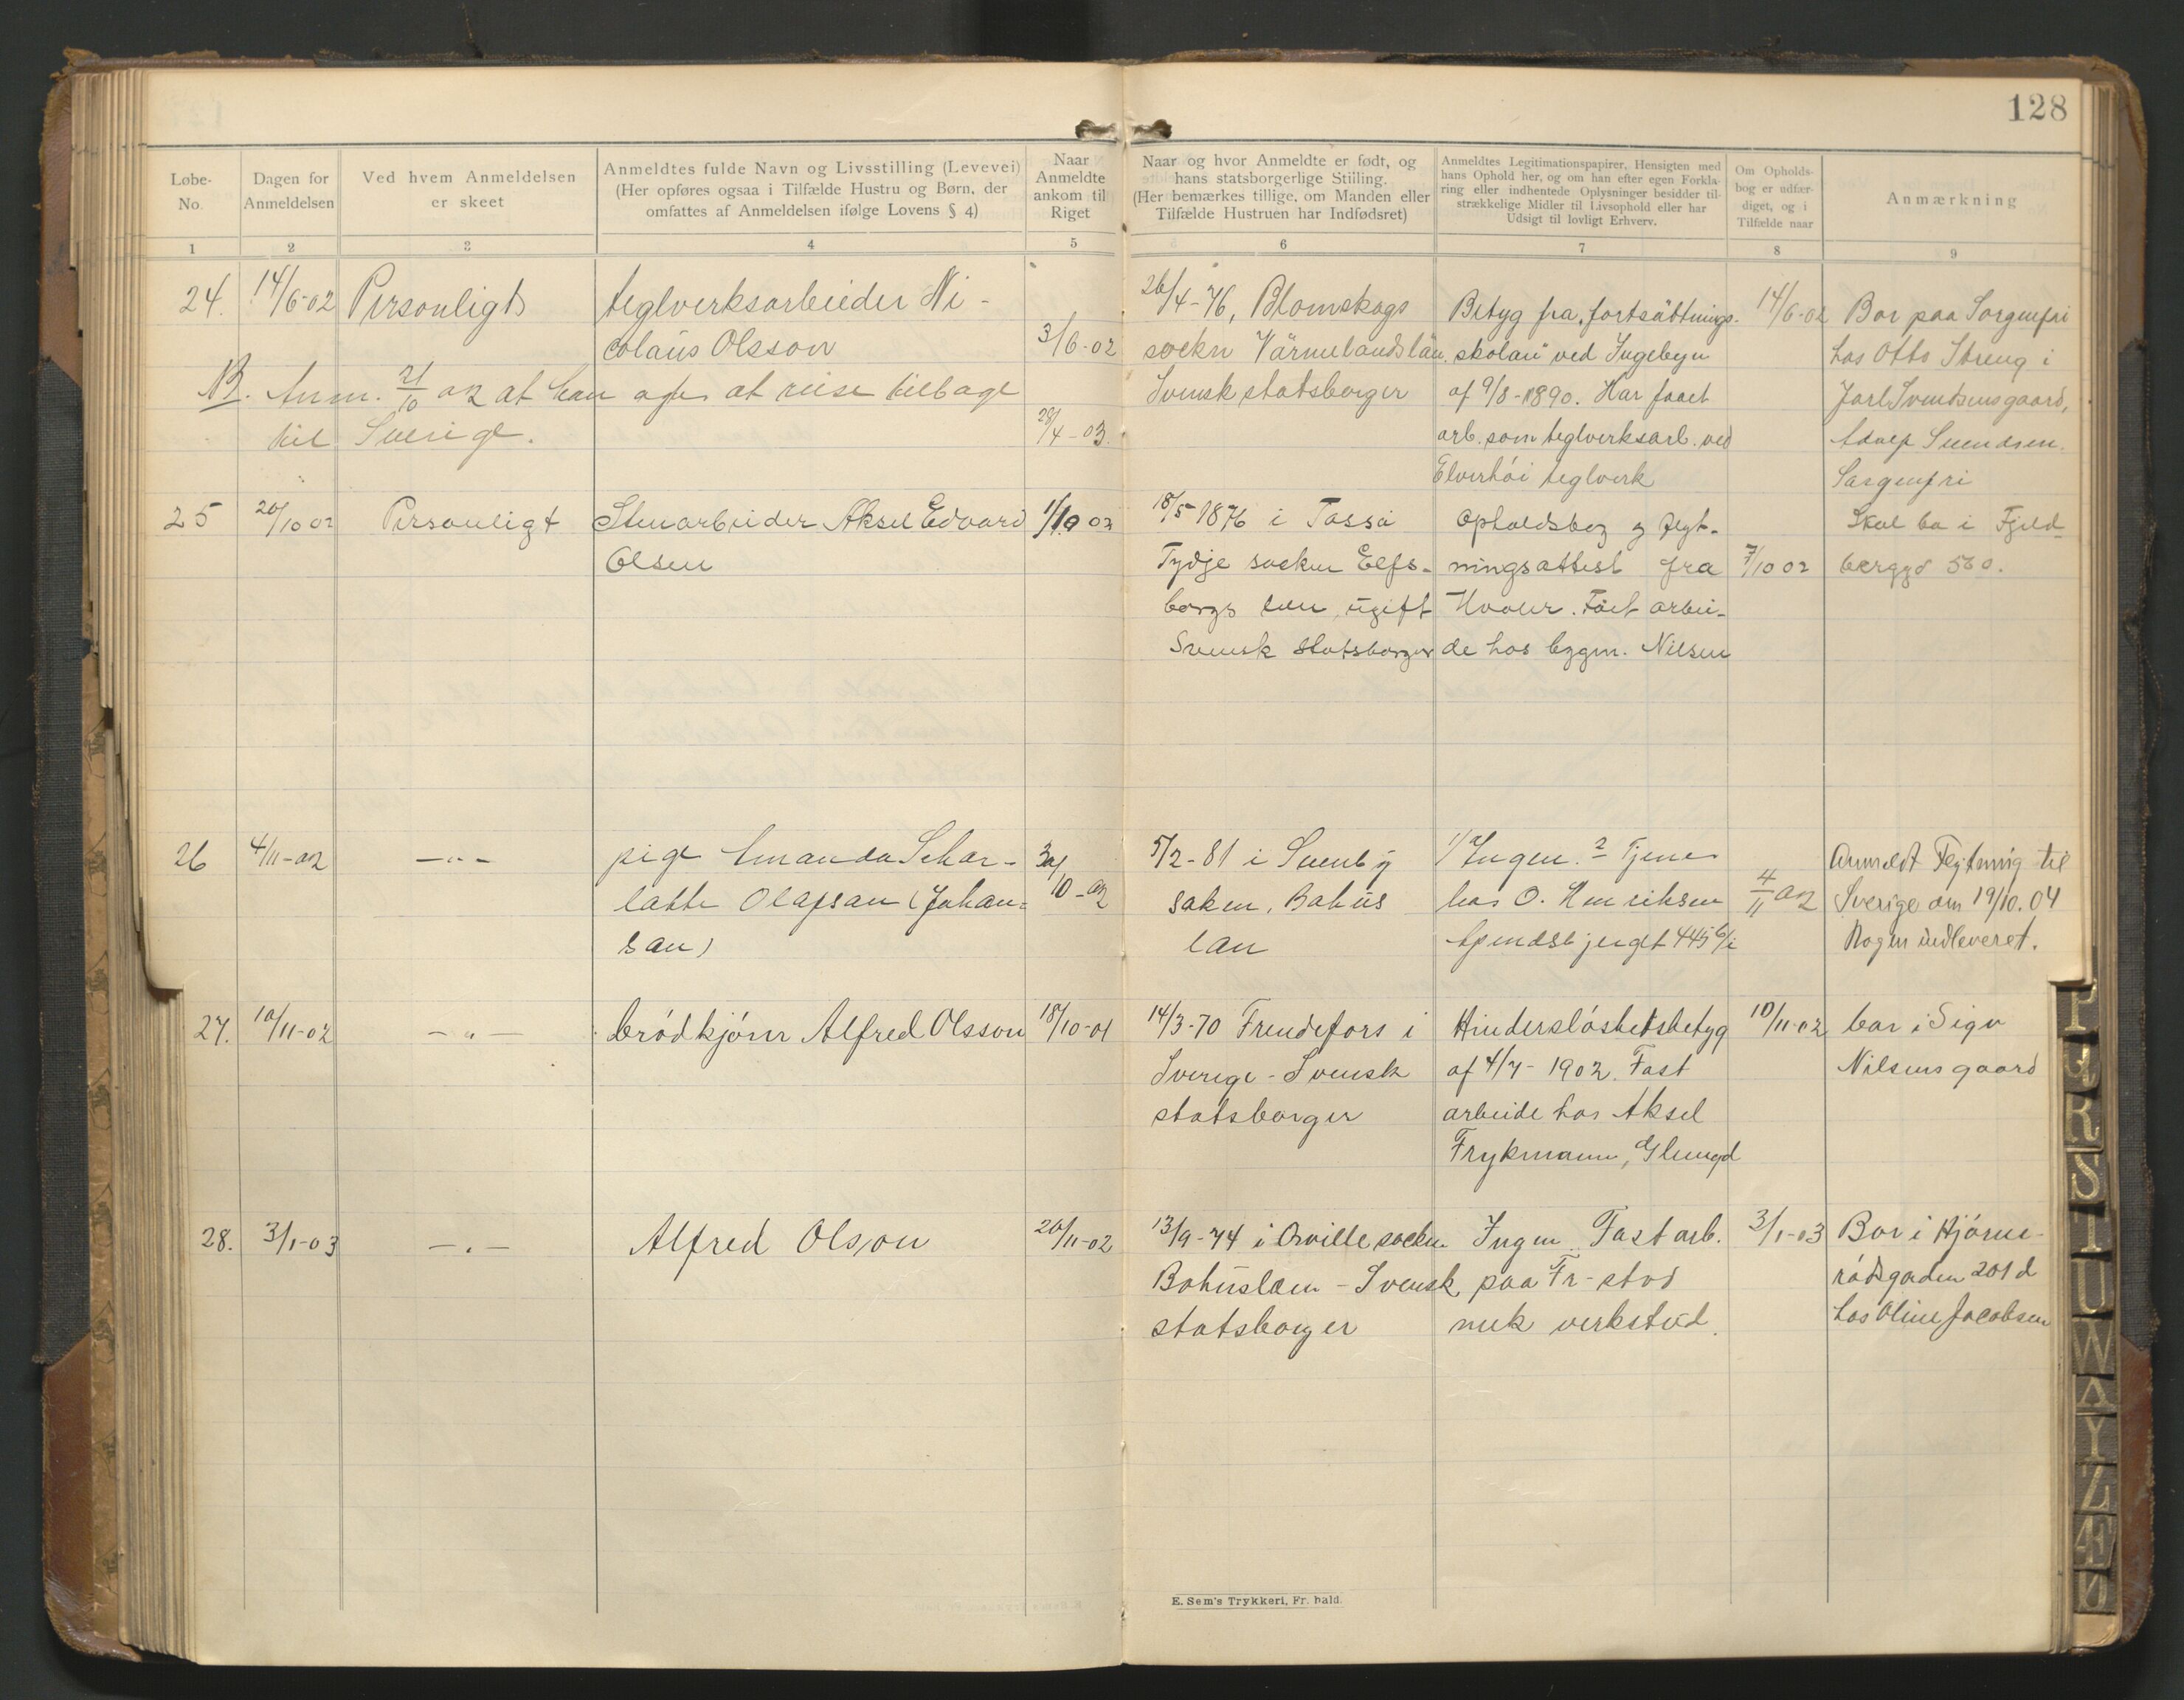 128
Løbe-
No.
Dagen for
Anmeldelsen
Ved hvem Anmeldelsen
er skeet
Anmeldtes fulde Navn og Livsstilling (Levevei)
(Her opføres ogsaa i Tilfælde Hustru og Børn, der
omfattes af Anmeldelsen ifølge Lovens § 4)
Naar
Anmeldte
ankom til
Riget
Naar og hvor Anmeldte er født, og
hans statsborgerlige Stilling.
(Her bemærkes tillige, om Manden eller
Tilfælde Hustruen har Indfødsret)
Anmeldtes Legitimationspapirer, Hensigten med
hans Ophold her, og om han efter egen Forkla-
ring eller indhentede Oplysninger besidder til-
strækkelige Midler til Livsophold eller har
Udsigt til lovligt Erhverv.
Om Opholds-
bog er udfær-
diget, og i
Tilfælde naar
Anmærkning
1 2 3 4 5 6 7 8 9
24.
14/6-02
Personligt
teglverksarbeider Ni-
colaus Olsson
3/6-02
NB. Anm. 21/10 02 at han agter at reise tilbage
til Sverige.
28/4-03.
26/4-76, Blomskogs
sockn Värmelandslän.
Svensk statsborger
Betyg fra "fortsättnings-
skolan" ved Ingebyn
af 9/8-1890. Har faaet
arb. som teglverksarb. ved
Elverhöi teglverk
14/6-02
Bor paa Sorgenfri
hos Otto Streng i
Jarl Svendsensgaard,
Adolf Svendsen.
Sorgenfri
25
20/10 02
Personligt
Stenarbeider Aksel Edvard
Olsen
1/10 02
18/5-1876 i Tossö
Tydje socken Elfs-
borgs len, ugift
Svensk statsborger
Opholdsbog og flyt-
ningsattest fra
Hvaler. Fået arbei-
de hos bygm. Nilsen
7/10 02
Skal bo i Fjeld-
berggd 560.
26
4/11-02
—"—
pige Amanda Schar-
latte Olafsan (Johan-
san)
30/10-02
5/2-81 i Svenby
saken, Bahus
lan
1/ Ingen. 2 Tjener
hos O. Henriksen
445 b/i
4/11 02
Anmeldt Flytning til
Sverige den 19/10.04
Bogen indleveret.
27.
10/11-02
—"—
brödkjörer Alfred Olsson
18/10-01
14/3-70 Frendefors i
Sverige - Svensk
statsborger
Hinderslöshetsbetyg
af 4/7-1902. Fast
arbeide hos Aksel
Frykmann, Glemgd
10/11-02
bor i Sigv
Nilsensgaard
28.
3/1-03
—"—
Alfred Olsson
20/11-02
13/9-74 i Qville socken
Bohuslæn - Svensk
statsborger
Ingen. Fast arb.
paa Fr-stad
mek verksted.
3/1-03
Bor i Hjörne-
rödsgarden 201d
hos Oline Jacobsen
E. Sem's Trykkeri, Fr. hald.
P
Q
R
S
T
U
W
A
Y
Z
Æ
Ø